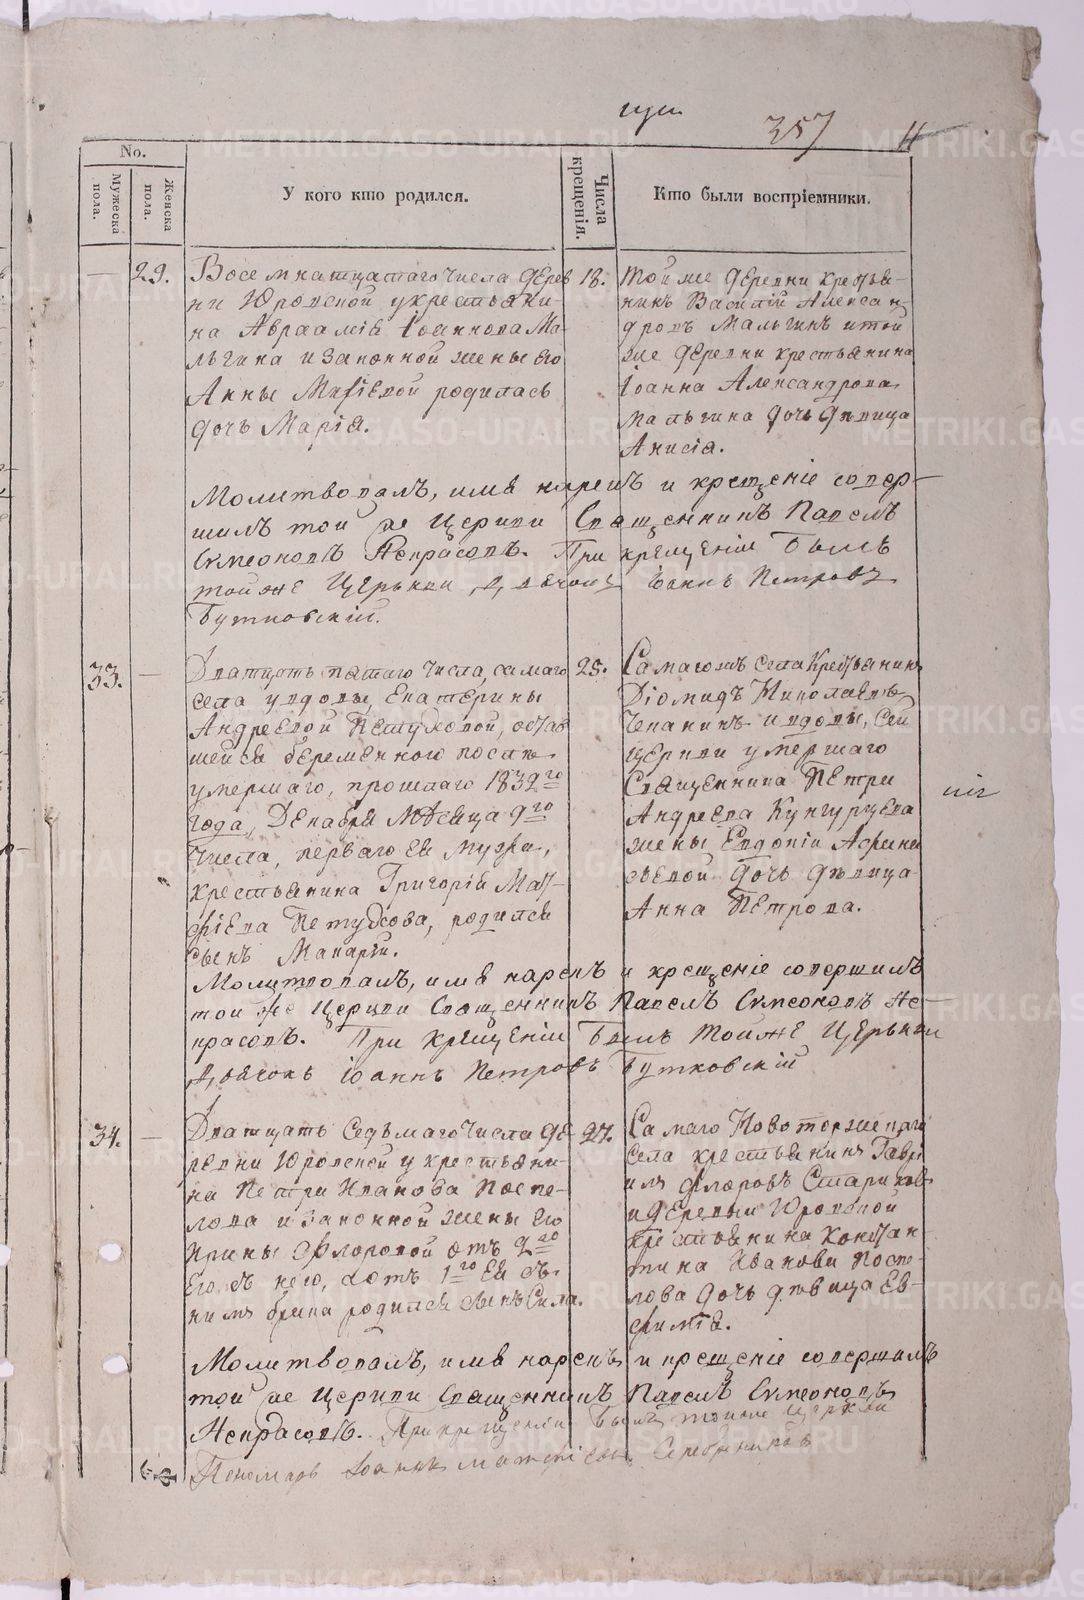 357
No.
Мужеска пола.
Женска пола.
У кого кто родился.
Числа крещенія.
Кто были воспріемники.
29.
Восемнатцатаго Числа дерев
ни Юровской у крестьяни-
на Авраамія Іоаннова Ма-
льгина и законной жены его
Анны родилась
дочь Марія.
18.
Той же деревни крестья-
нинъ Василій Алексан-
дровъ Мальгинъ и той
же деревни крестьянина
Іоанна Александрова
Мальгина дочь дѣвица
Анисія.
Молитвовалъ, имя нарекъ и крещеніе совер-
шилъ той же Церкви Священникъ Павелъ
Симеоновъ Некрасовъ. При крещеніи былъ
той же Церькви Дьячокъ Іоаннъ Петровъ
Бутковскій.
33.
Дватцать пятаго числа, самаго
села у вдовы, Екатерины
Андреевой Петуховой, остав
шейся беременною после
умершаго, прошлаго 1832го
года, Декабря Мѣсяца 9го
числа, перваго ея мужа,
крестьянина Григорія Мат-
фіева Петухова, родился
сынъ Макарій.
25.
Самагожъ села Крестьянинъ
Діомидъ Николаевъ
Чепанинъ и вдовы, сей
церкви умершаго
Священника Петра
Андреева Кунгурцева
жены Евдокіи Афана
сьевой дочь дѣвица
Анна Петрова.
Молитвовалъ, имя нарекъ и крещеніе совершилъ
той же Церкви Священникъ Павелъ Симеоновъ Не-
красовъ. При крещеніи былъ той же Церькви
Дьячокъ Іоаннъ Петровъ Бутковскій
34.
Дватцать Седьмаго Числа де-
ревни Юровской у крестьяни-
на Петра Иванова Поспе-
лова и законной жены его
Ирины Флоровой отъ 2го
его съ нею, а отъ 1го ея съ
нимъ брака родился сынъ Сила.
27.
Самаго Новоторжскаго
села крестьянинъ Гаврі
илъ Флоровъ Стариковъ
и деревни Юровской
крестьянина Констан-
тина Иванова Поспе-
лова дочь дѣвица Ев-
фимія.
Молитвовалъ, имя нарекъ и крещеніе совершилъ
той же Церкви Священникъ Павелъ Симеоновъ
Некрасовъ. При крещеніи былъ тойже церкви
Пономарь Іоаннъ Матфіевъ Серебрениковъ
METRIKI.GASO-URAL.RU